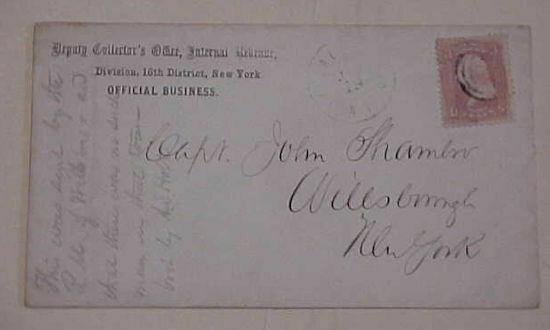 Deputy Collector's Office, Internal Revenue,
Division, 16th District, New York
OFFICIAL BUSINESS.
Capt. John Shambo
Willsborough
New York
This was sent by the
P. M. of Willsboro &
that there was no such
man in that town